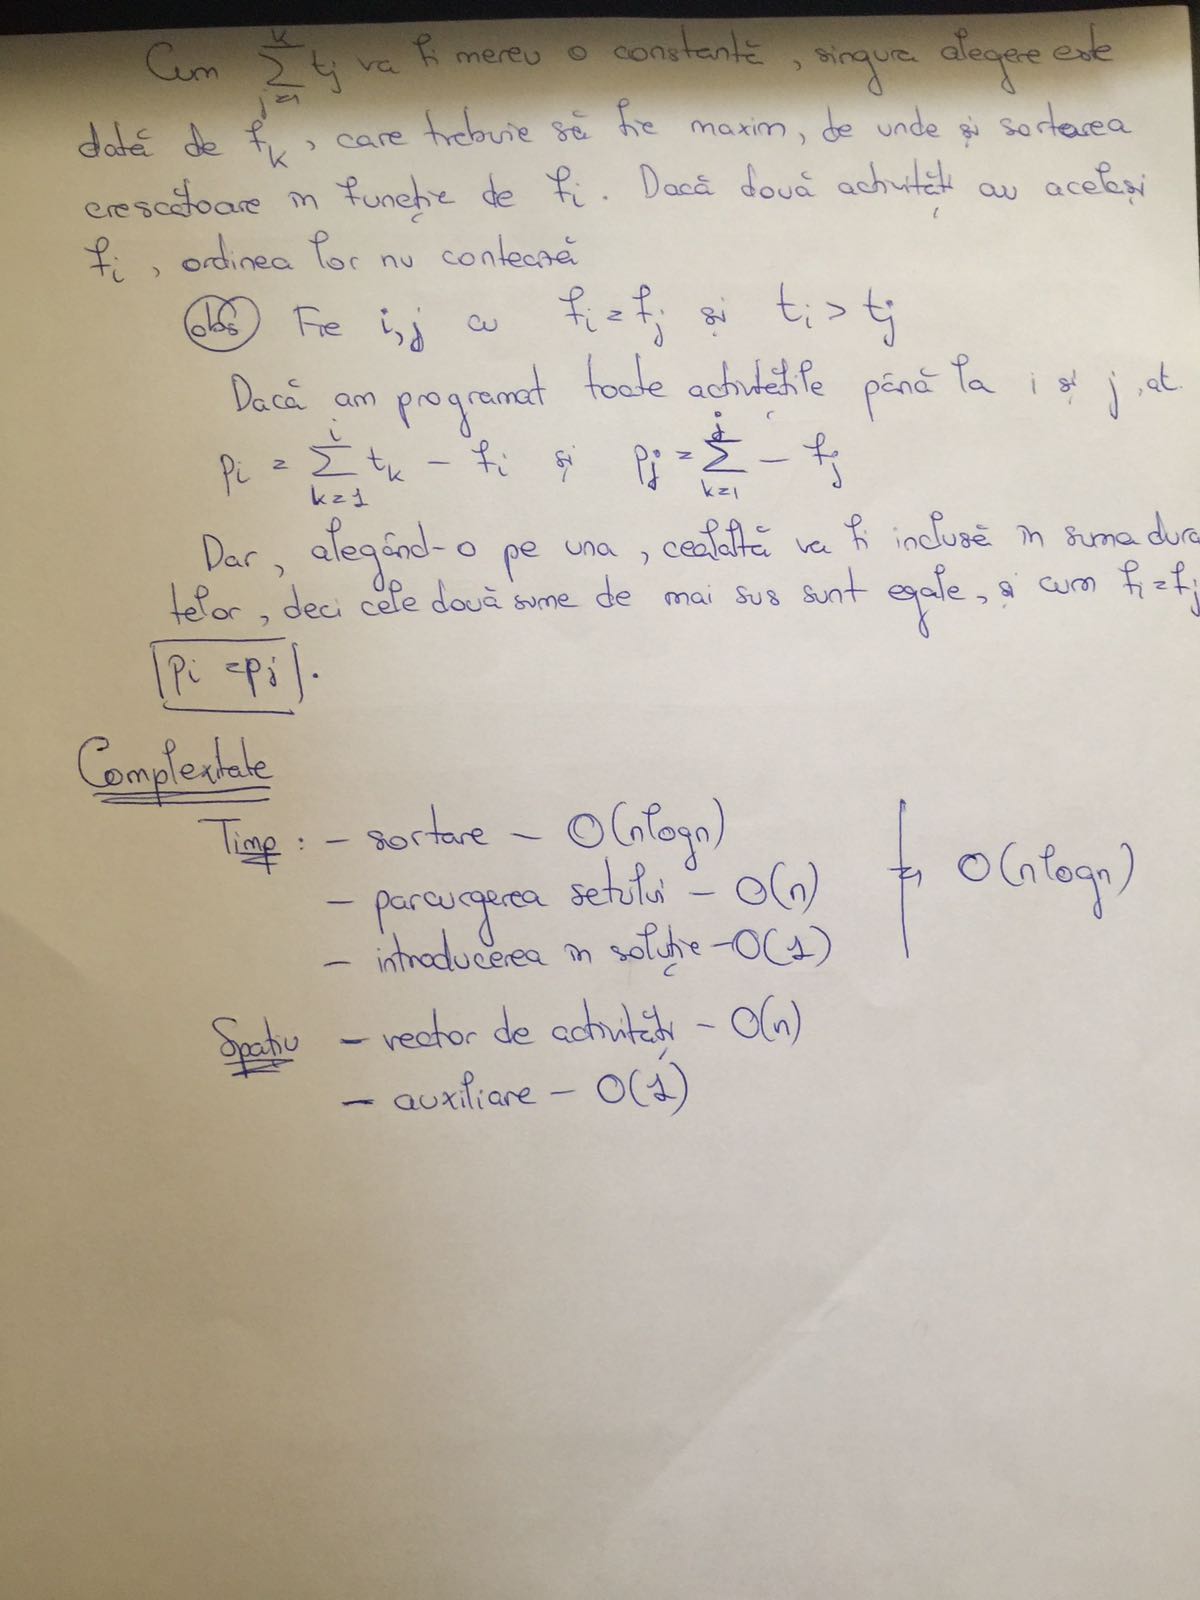 Cum $\sum_{j=1}^{k} t_j$ va fi mereu o constantă, singura alegere este
dată de f_k, care trebuie să fie maxim, de unde și sortarea
crescătoare în funcție de f_i. Dacă două activități au același
f_i, ordinea lor nu contează
obs Fie i,j cu f_i = f_j și t_i > t_j
Dacă am programat toate activitățile până la i și j, at.
p_i = $\sum_{k=1}^{i} t_k$ - f_i și p_j = $\sum_{k=1}^{j}$ - f_j
Dar, alegând-o pe una, cealaltă va fi inclusă în suma dura
telor, deci cele două sume de mai sus sunt egale, și cum f_i = f_j
p_i = p_j.
Complexitate
Timp : - sortare - O(nlogn)
- parcurgerea setului - O(n) => O(nlogn)
- introducerea în soluție - O(1)
Spațiu - vector de activități - O(n)
- auxiliare - O(1)